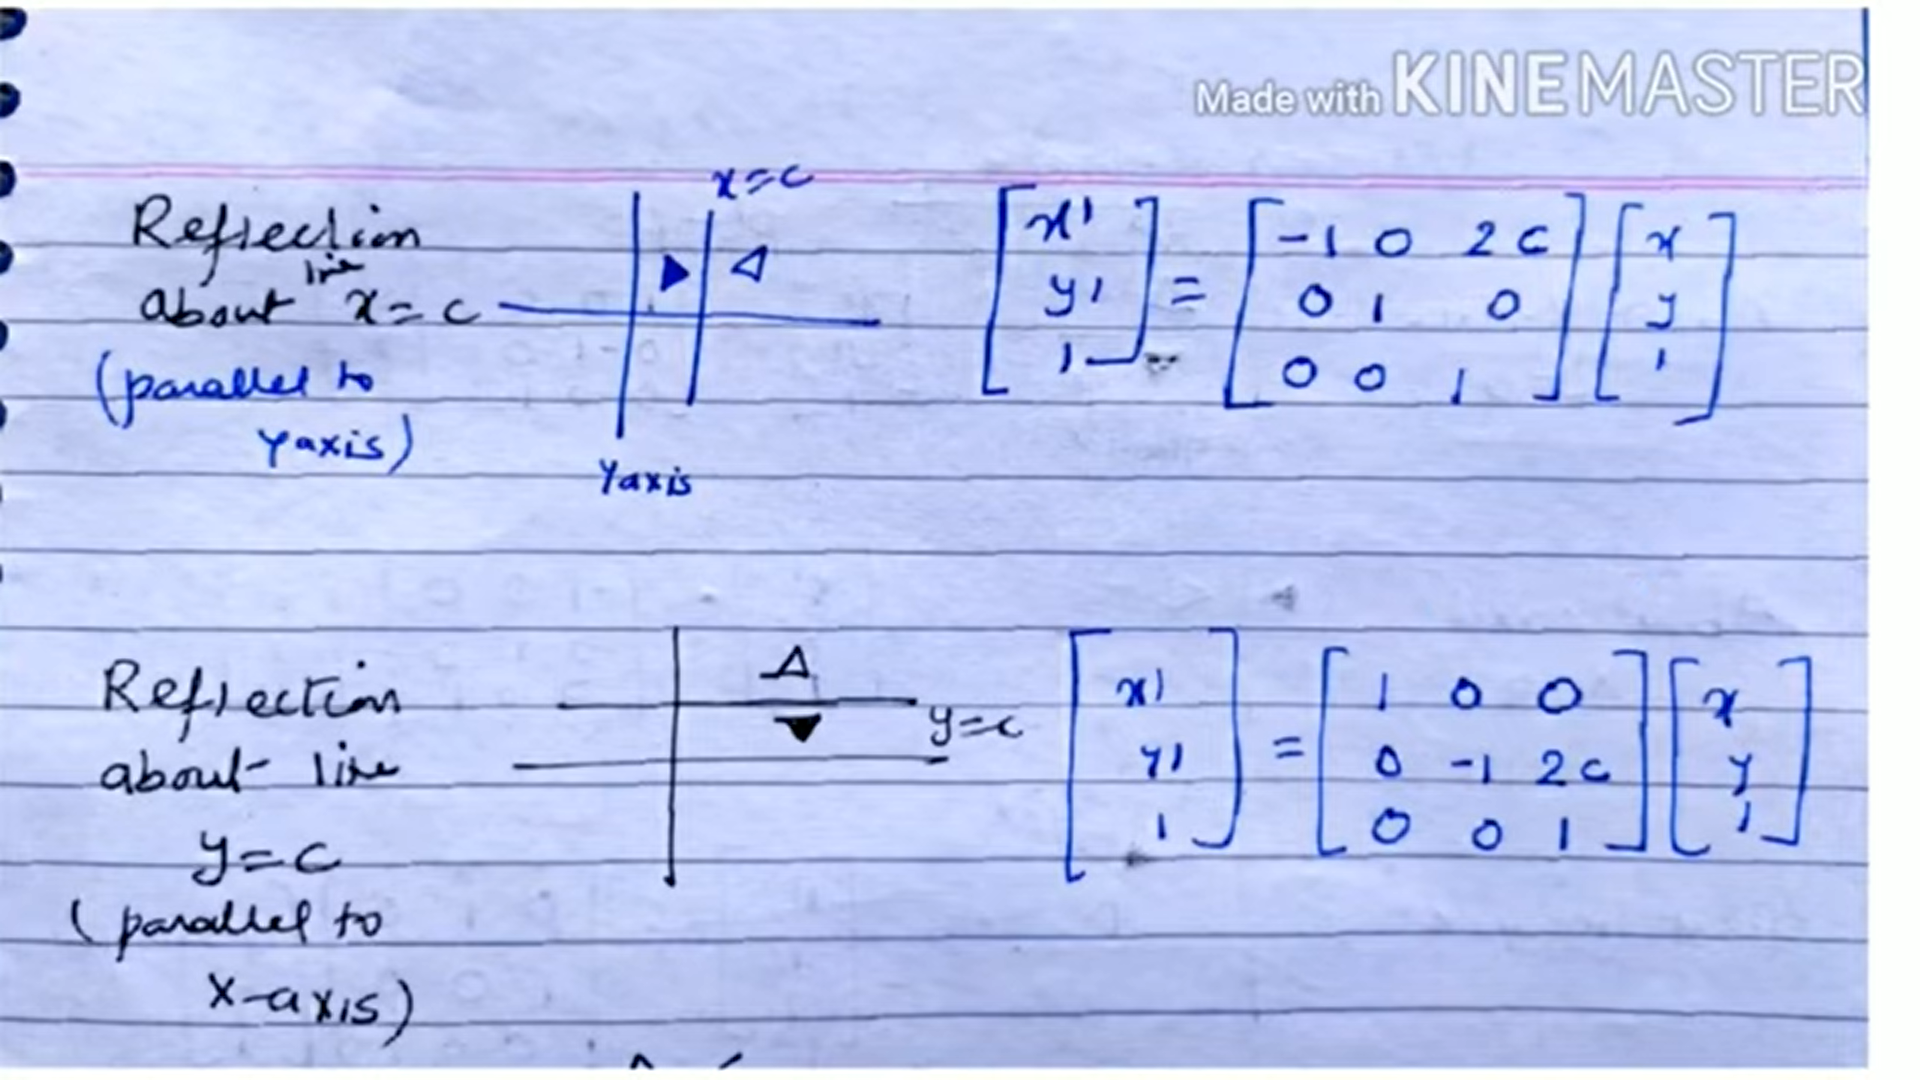 Made with KINEMASTER
Reflection
about line x=c
(parallel to
Yaxis)
x=c
Yaxis
[x' y' 1] = [-1 0 2c
0 1 0
0 0 1] [x y 1]
Reflection
about line
y=c
(parallel to
X-axis)
y=c
[x' y' 1] = [1 0 0
0 -1 2c
0 0 1] [x y 1]